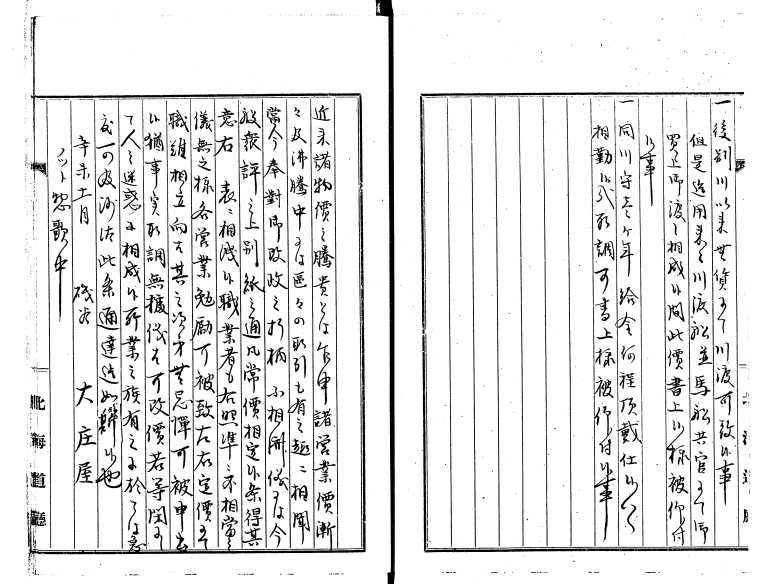 一後別川以来無賃ニて川渡可致候事
但是迄用来候川渡船並馬船共官ニて御
買上御渡ニ相成候間此價書上候様被仰付
候事
一同川守壱ヶ年給金何程頂戴仕候哉
相勤候哉取調可書上様被仰付候事
近来諸物價之騰貴とは乍申諸営業價漸
々及沸騰中ニは區々の取引も有之趣ニ相聞
當今奉對御改政之折柄不相済儀ニは今
般衆評之上別紙之通凡常價相定候条得其
意右 表ニ相減候職業者も右照準ニ不相當之
儀無之様各営業勉励可被致右定價ニて
職難相立向は其之次才無忌憚可被申出
候猶事実取調無據儀は可改價若等閑ニて
て人之迷惑ニ相成候所業之族有之ニ於ては急
度可及沙汰此条通達迄如斯候也
辛未十一月 磯谷 大庄屋
ノット 惣歌中
北海道廳